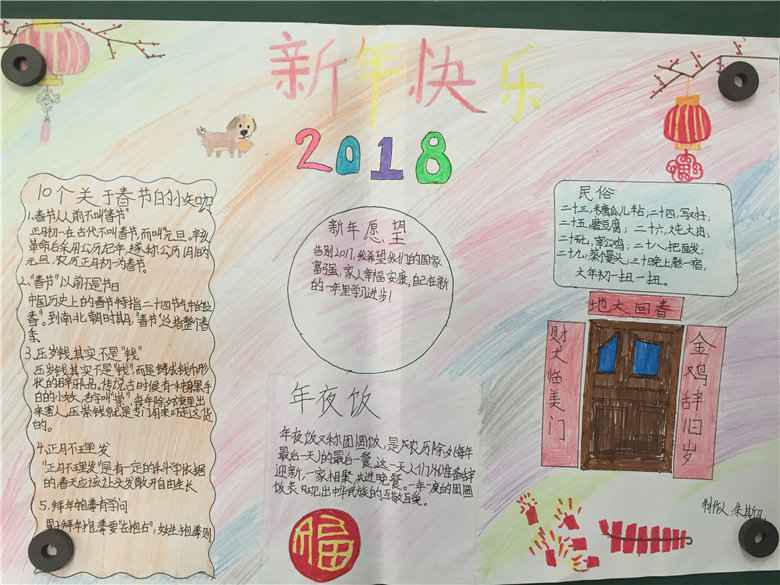 新年快乐
2018
10个关于春节的小知识
1.春节以前不叫"春节"
正月初一在古代不叫春节而叫元旦。辛亥
革命后采用公历纪年,遂称公历1月1日为
元旦,农历正月初一为春节。
2."春节"以前是节日
中国历史上的春节特指二十四节气中的立
春"。到南北朝时期,"春节"泛指整个春
季
3.压岁钱其实不是"钱"
压岁钱其实不是"钱"而是铸成钱币形
状的辟邪品,传说古时候有一种黑手
白的小妖,名字叫"祟",每年除夕夜里出
来害人,压祟钱就是专门用来吓走这货
的。
4.正月不理发
"正月不理发"是有一定的科学依据
的春天应该让头发散开自由生长
5.拜年抱拳有学问
男子拜年抱拳要"左抱右",女生抱拳则
新年愿望
告别2017,我希望我们的国家
富强,家人幸福安康,自己在新
的一年里学习进步!
年夜饭
年夜饭又称团圆饭,是农历除夕(每年
最后一天)的最后一餐。这一天人们准备辞
迎新,一家相聚,共进晚餐。一年一度的团圆
饭表现出中华民族的互敬互爱。
福
民俗
二十三,糖瓜儿粘;二十四,写对子;
二十五,磨豆腐;二十六,炖大肉;
二十七,宰公鸡;二十八,把面发;
二十九,蒸馒头;三十晚上熬一宿;
大年初一扭一扭。
地大回春
财大临美门
金鸡辞旧岁
制作人